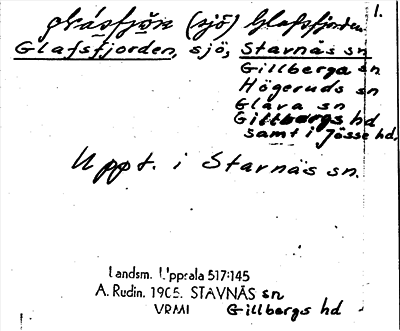 1.
(sjö) Glafsfjorden
Glafsfjorden, sjö, Stavnäs sn
Gillberga sn
Högeruds sn
Glava sn
Gillbergs hd
samt i Jösse hd.
Uppt. i Stavnäs sn.
Landsm. Uppsala 517:145
A. Rudin. 1905. STAVNÄS sn
VRML Gillbergs hd